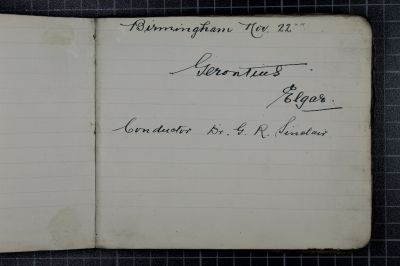 Birmingham Nov. 22nd
Gerontius.
Elgar.
Conductor Dr. G. R. Sinclair